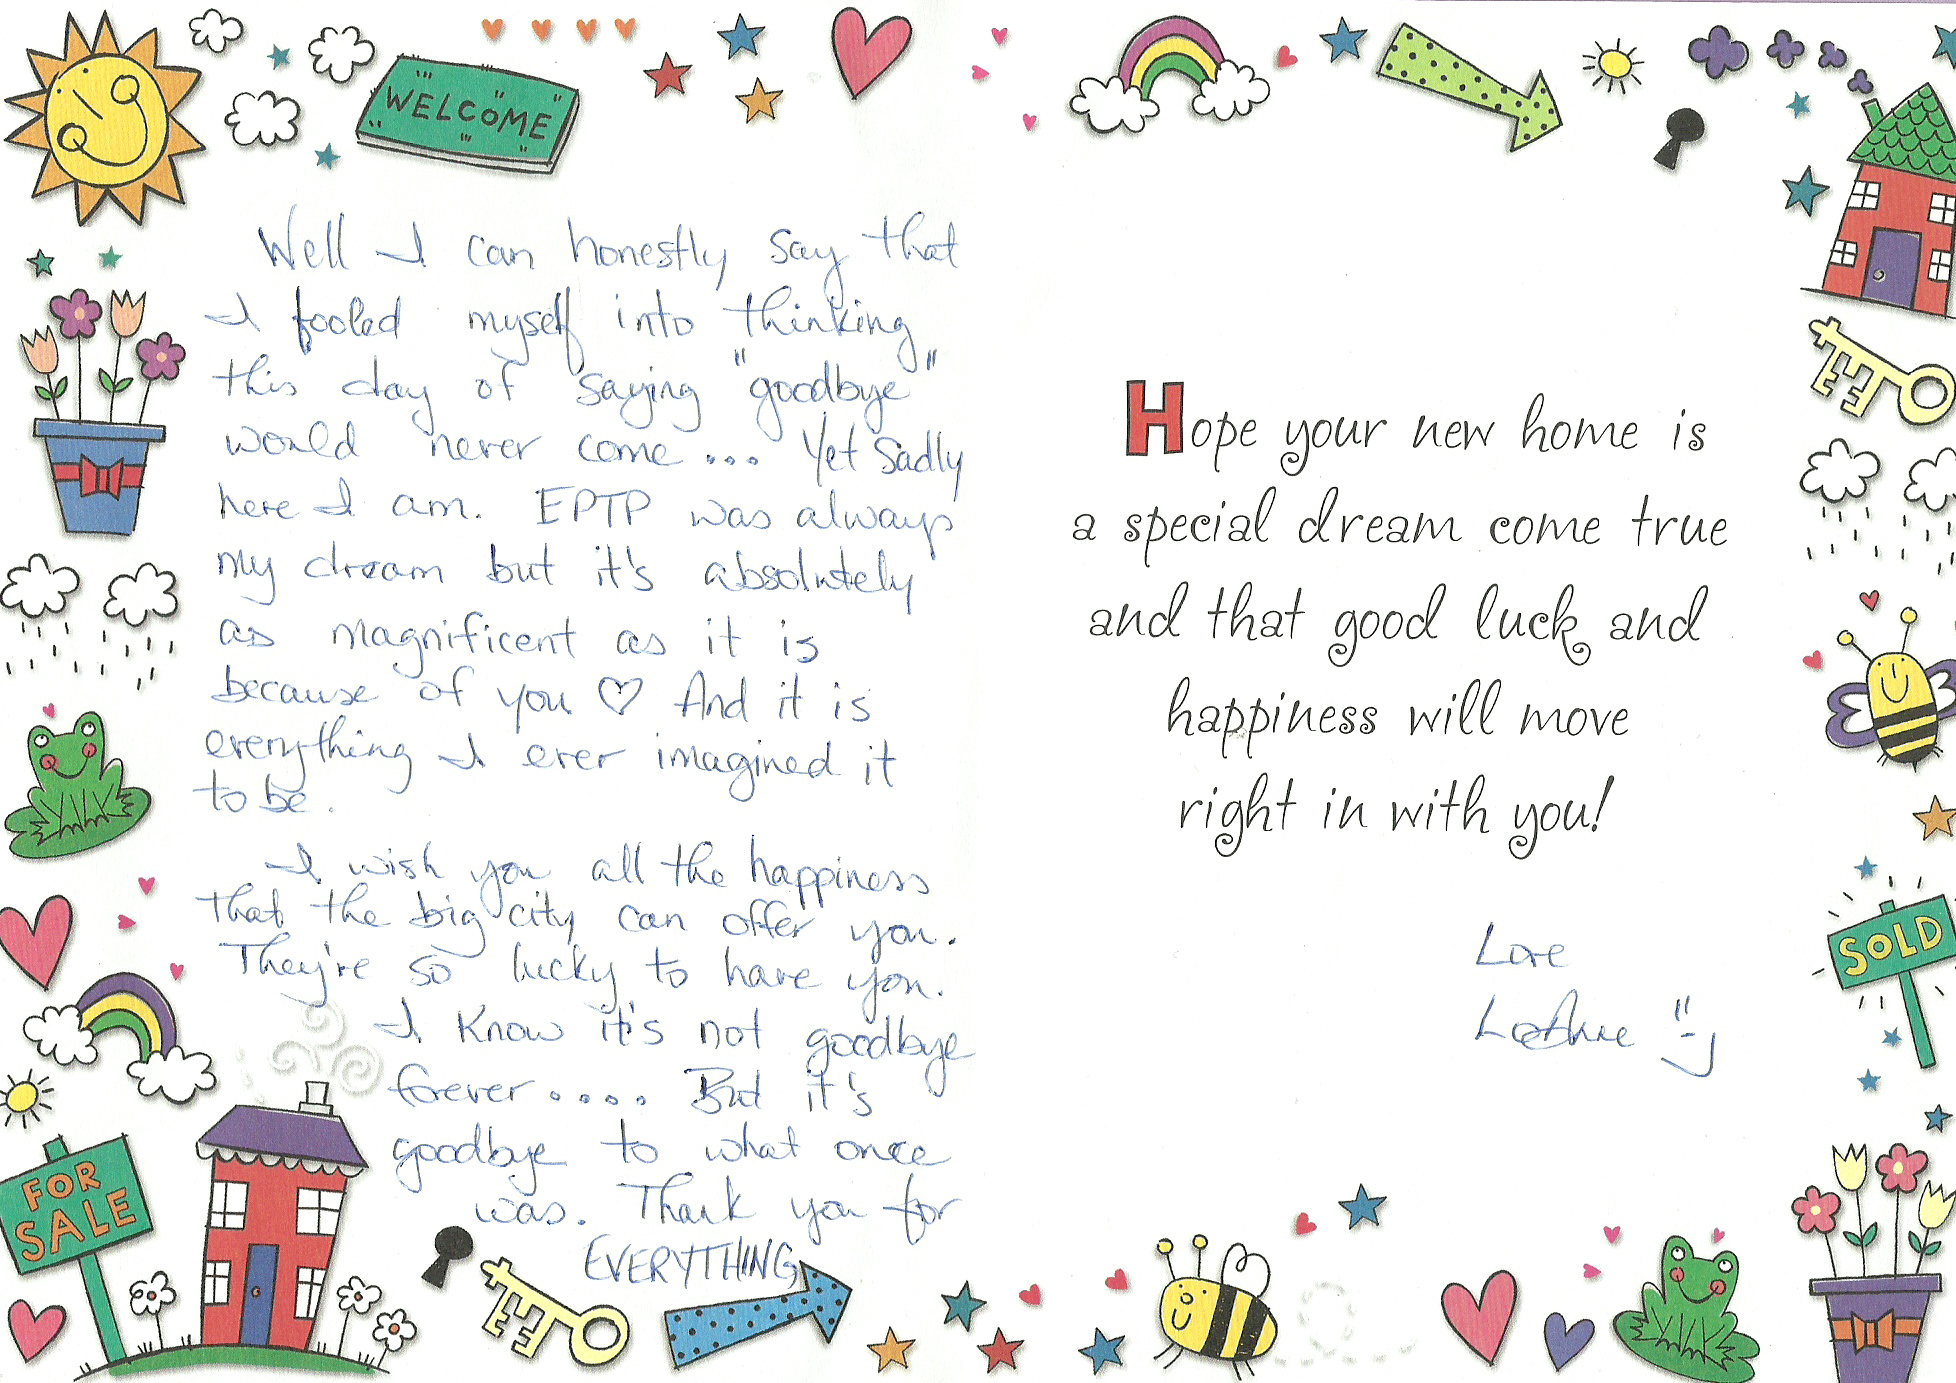 WELCOME
Well I can honestly say that
I fooled myself into thinking
this day of saying "goodbye"
would never come... Yet sadly
here I am. EPTP was always
my dream but it's absolutely
as magnificent as it is
because of you ♡ And it is
everything I ever imagined it
to be.
I wish you all the happiness
that the big city can offer you.
They're so lucky to have you.
I know it's not goodbye
forever.... But it's
goodbye to what once
was. Thank you for
EVERYTHING
FOR
SALE
Hope your new home is
a special dream come true
and that good luck and
happiness will move
right in with you!
Love
LeeAnne
SOLD